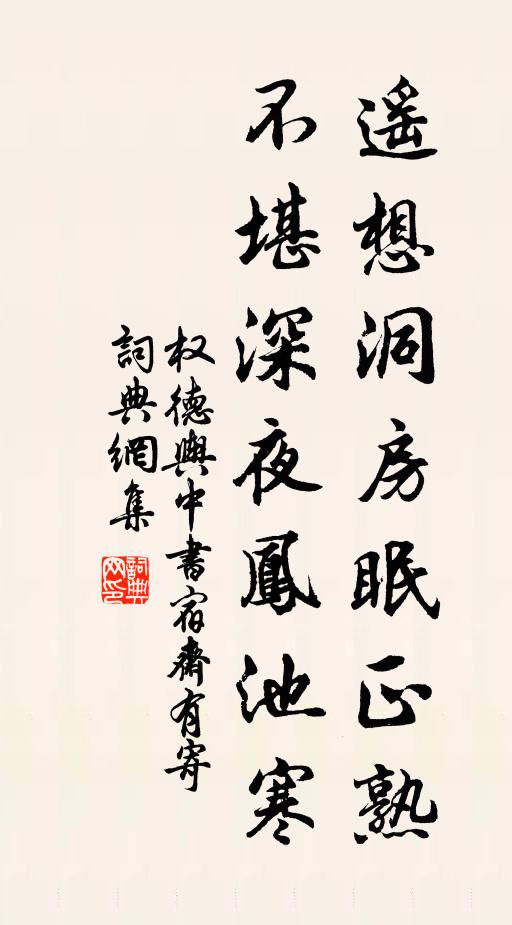 遥想洞房眠正熟
不堪深夜鳳池寒
权德輿中書宿齋有寄
詞典網集
詞典网印